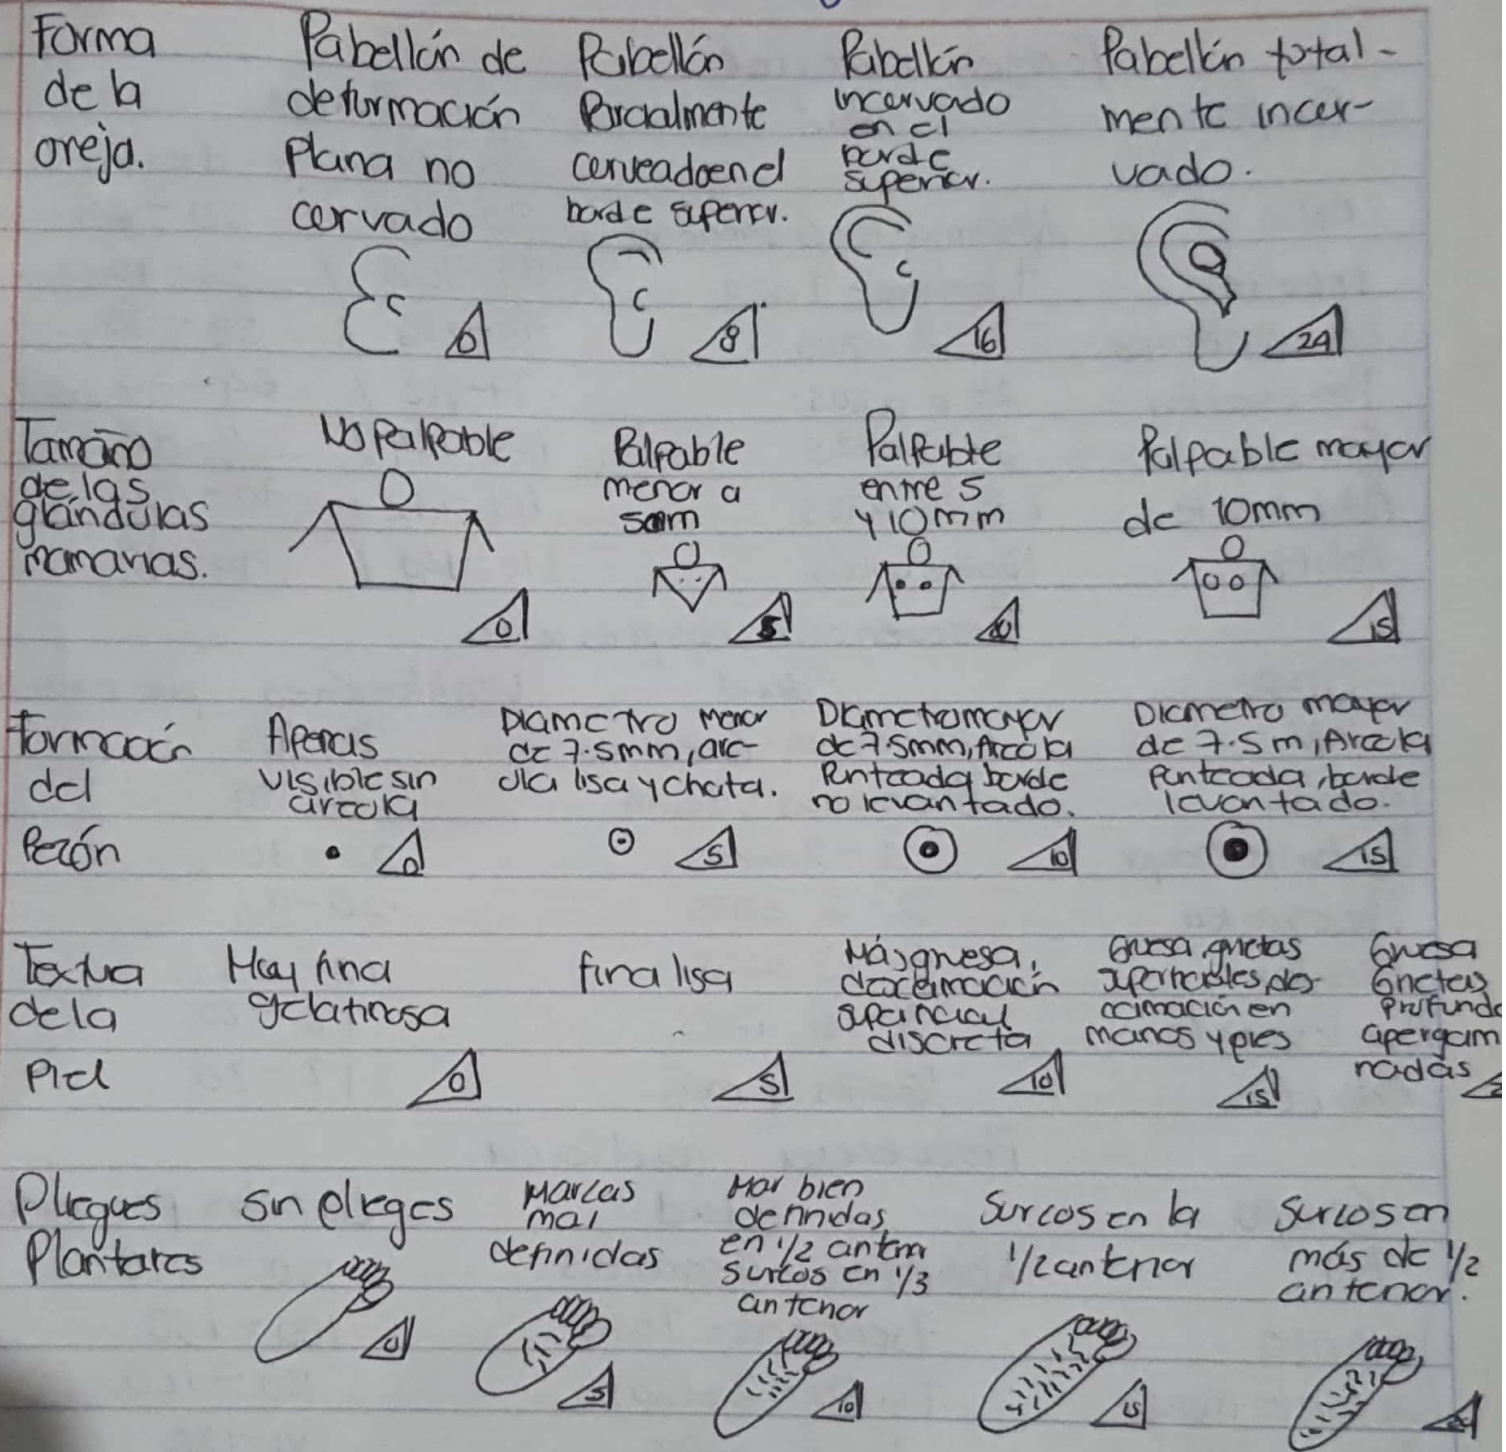 Forma
de la
oreja.
Pabellón de
deformación
Plana no
corvado
0
Pabellón
Parcialmente
corveado en el
borde superior.
8
Pabellón
incorvado
en el
borde
superior.
16
Pabellón total-
mente incor-
vado.
24
Tamaño
de las
glándulas
mamarias.
No Palpable
0
Palpable
menor a
5mm
5
Palpable
entre 5
y 10mm
10
Palpable mayor
de 10mm
15
Formación
del
Pezón
Apenas
visible sin
areola
0
Diametro menor
de 7.5mm, are-
ola lisa y chata.
5
Diametro mayor
de 7.5mm, Areola
Punteada borde
no levantado.
10
Diametro mayor
de 7.5m, Areola
Punteada, borde
levantado.
15
Textura
de la
Piel
Muy fina
gelatinosa
0
fina lisa
5
Más gruesa,
discreta
10
Gruesa, grietas
superficiales, des-
camación en
manos y pies
15
Gruesa
Grietas
Profundo
apergam
nadas
Pliegues
Plantares
sin pliegues
0
Marcas
mal
definidas
5
Mar bien
definidas
en 1/2 anterior
surcos en 1/3
anterior
10
Surcos en la
1/2 anterior
15
Surcos en
más de 1/2
anterior.